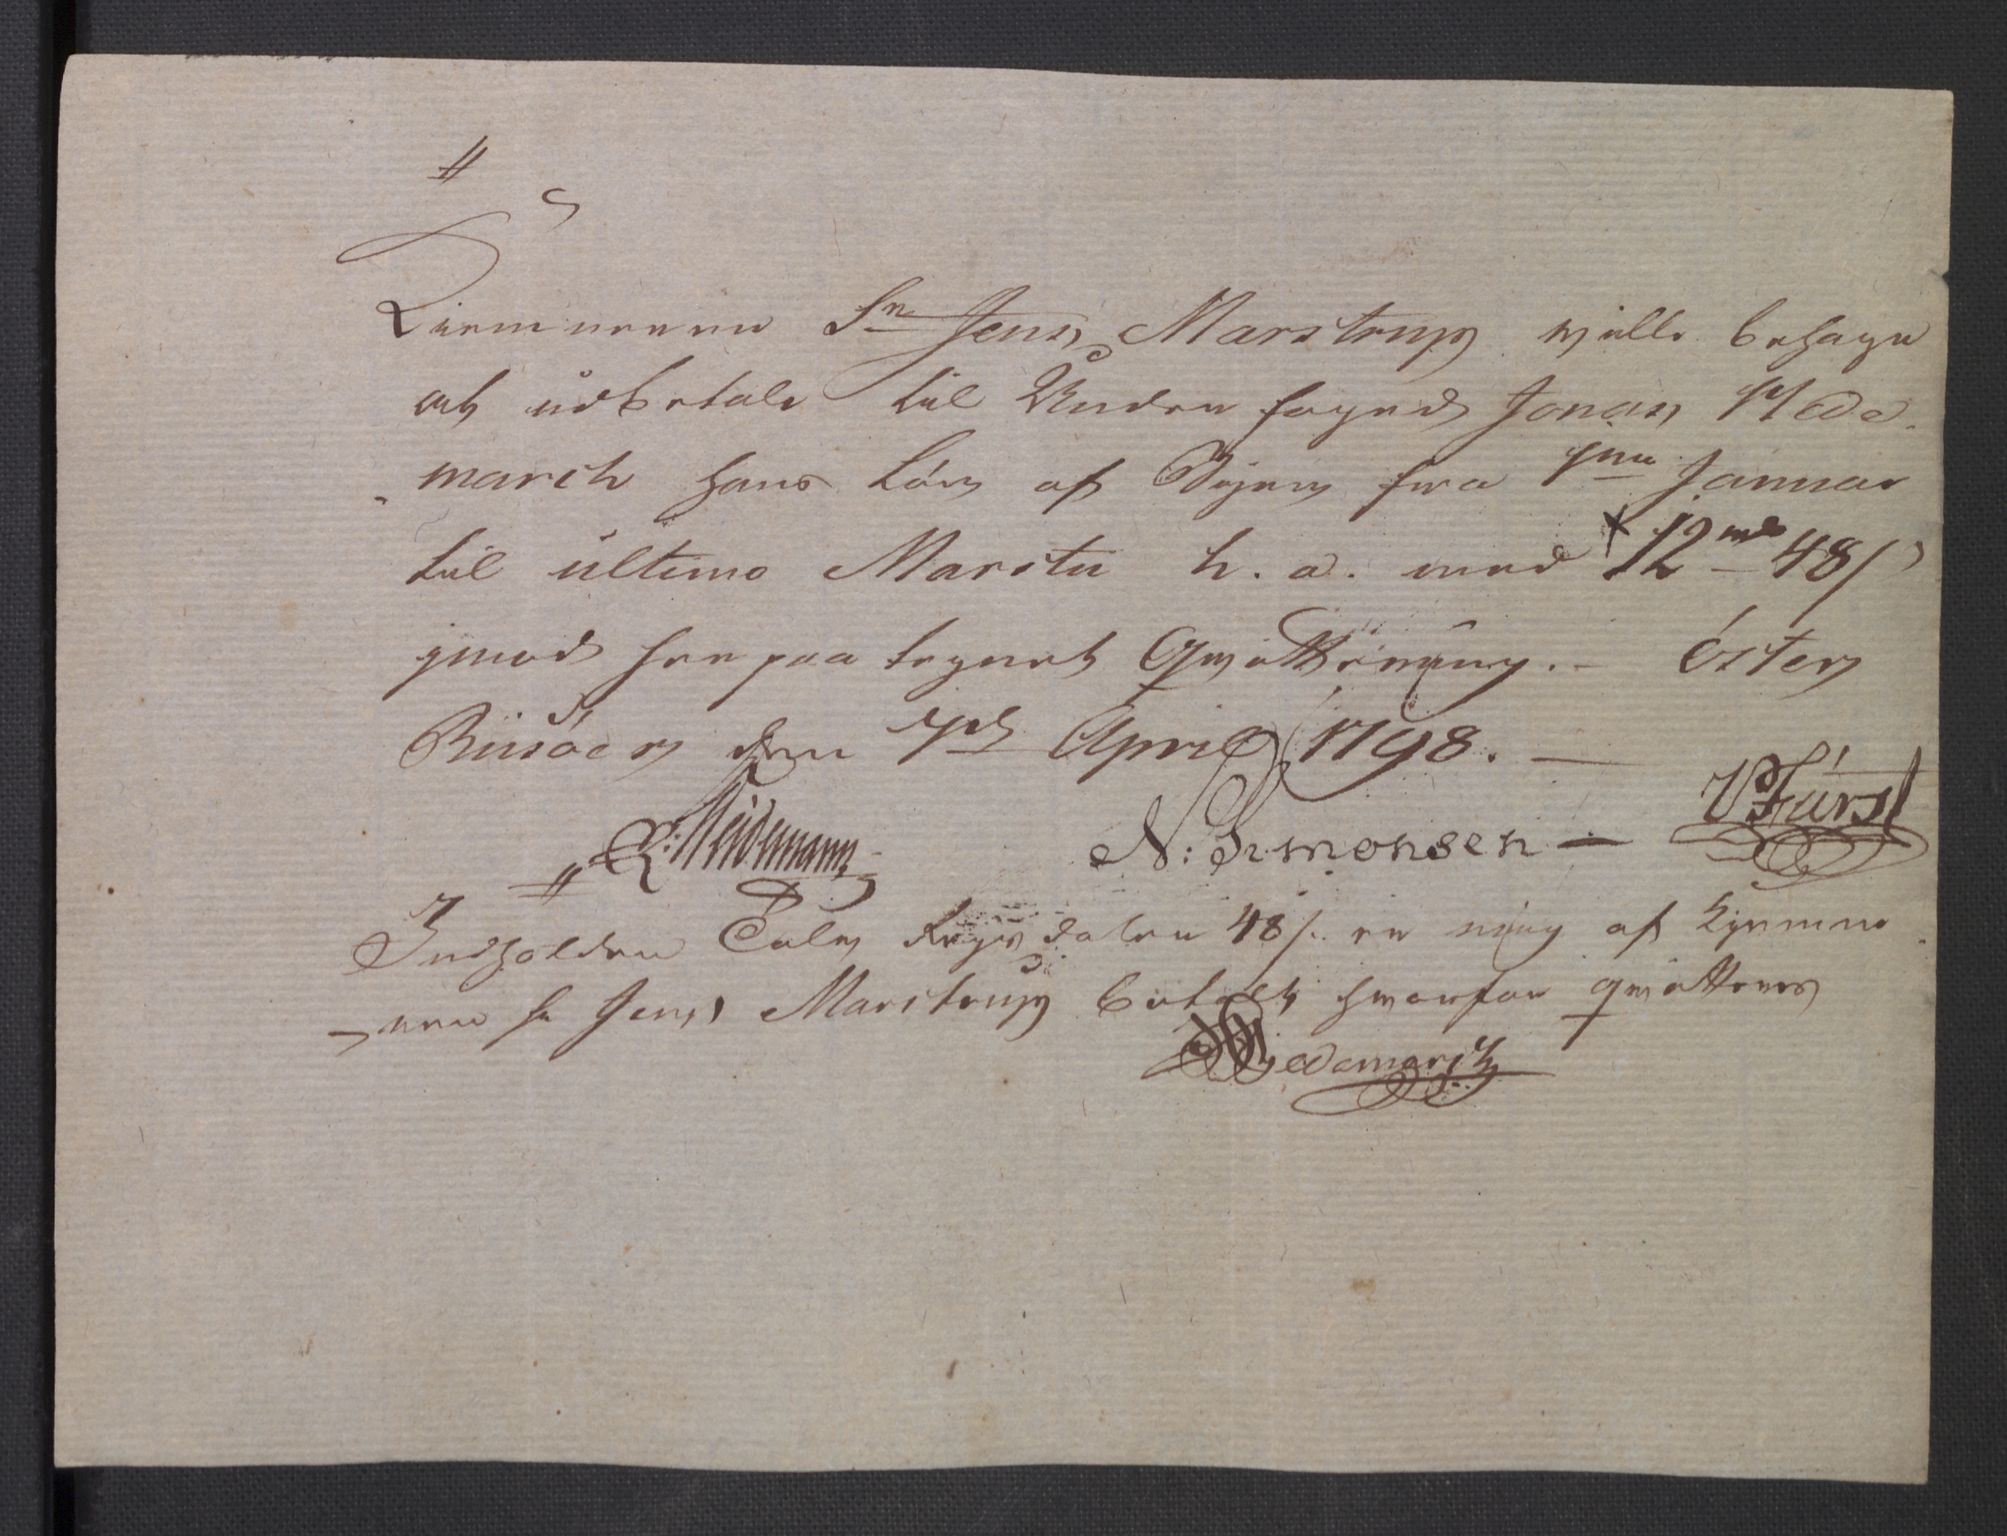 Kiemneren Sr Jens Marstrup wille behage
at udbetale til Underfoged Jonas Hede-
march hans Lön af Byen fra 1ma Januar
til ultimo Martii h. a. med 12 rd 48 s
imod her paategnet Qvittering. – Öster
Riisöer den 7de April 1798. –
Weidemann N: Simonsen – Fürst
Indholdne Tolv Rigsdaler 48 s. er mig af Kiemne-
ren Sr Jens Marstrup betalt hvorfor qvitteres
Hedemarch